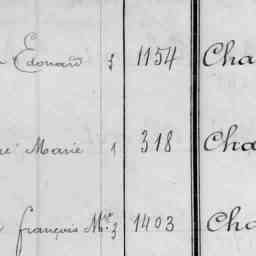 Edouard 3 1154 Cha
Marie 1 318 Cha
françois Mie 3 1403 Cha